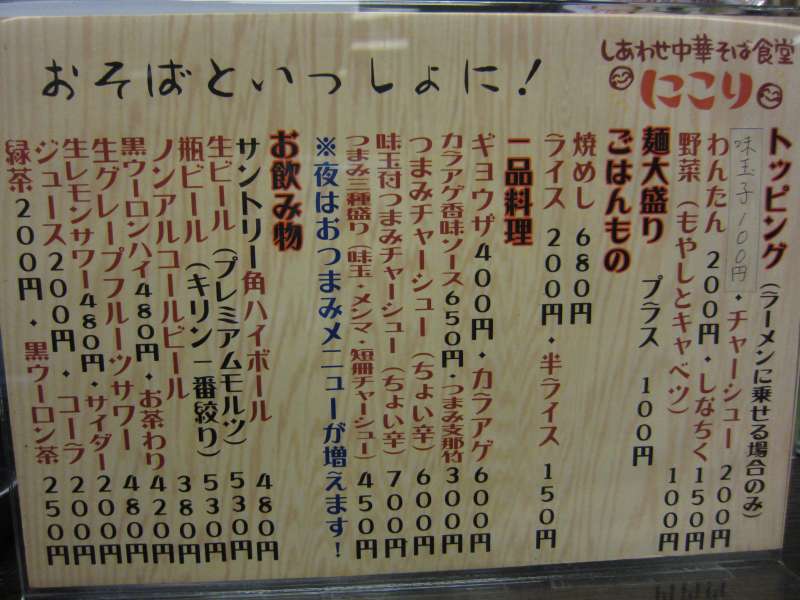 おそばといっしょに!
しあわせ中華そば食堂
にこり
トッピング(ラーメンに乗せる場合のみ)
味玉子100円・チャーシュー200円
わんたん200円・しなちく150円
野菜(もやしとキャベツ)100円
麺大盛り プラス100円
ごはんもの
焼めし 680円
ライス 200円・半ライス 150円
一品料理
ギョウザ400円・カラアゲ600円
カラアゲ香味ソース650円・つまみ支那竹300円
つまみチャーシュー(ちょい辛)600円
味玉付つまみチャーシュー(ちょい辛)700円
つまみ三種盛り(味玉・メンマ・短冊チャーシュー)450円
※夜はおつまみメニューが増えます!
お飲み物
サントリー角ハイボール 480円
生ビール(プレミアムモルツ)530円
瓶ビール(キリン一番絞り)530円
ノンアルコールビール 380円
黒ウーロンハイ480円・お茶わり420円
生グレープフルーツサワー 480円
生レモンサワー480円・サイダー200円
ジュース200円・コーラ200円
緑茶200円・黒ウーロン茶250円